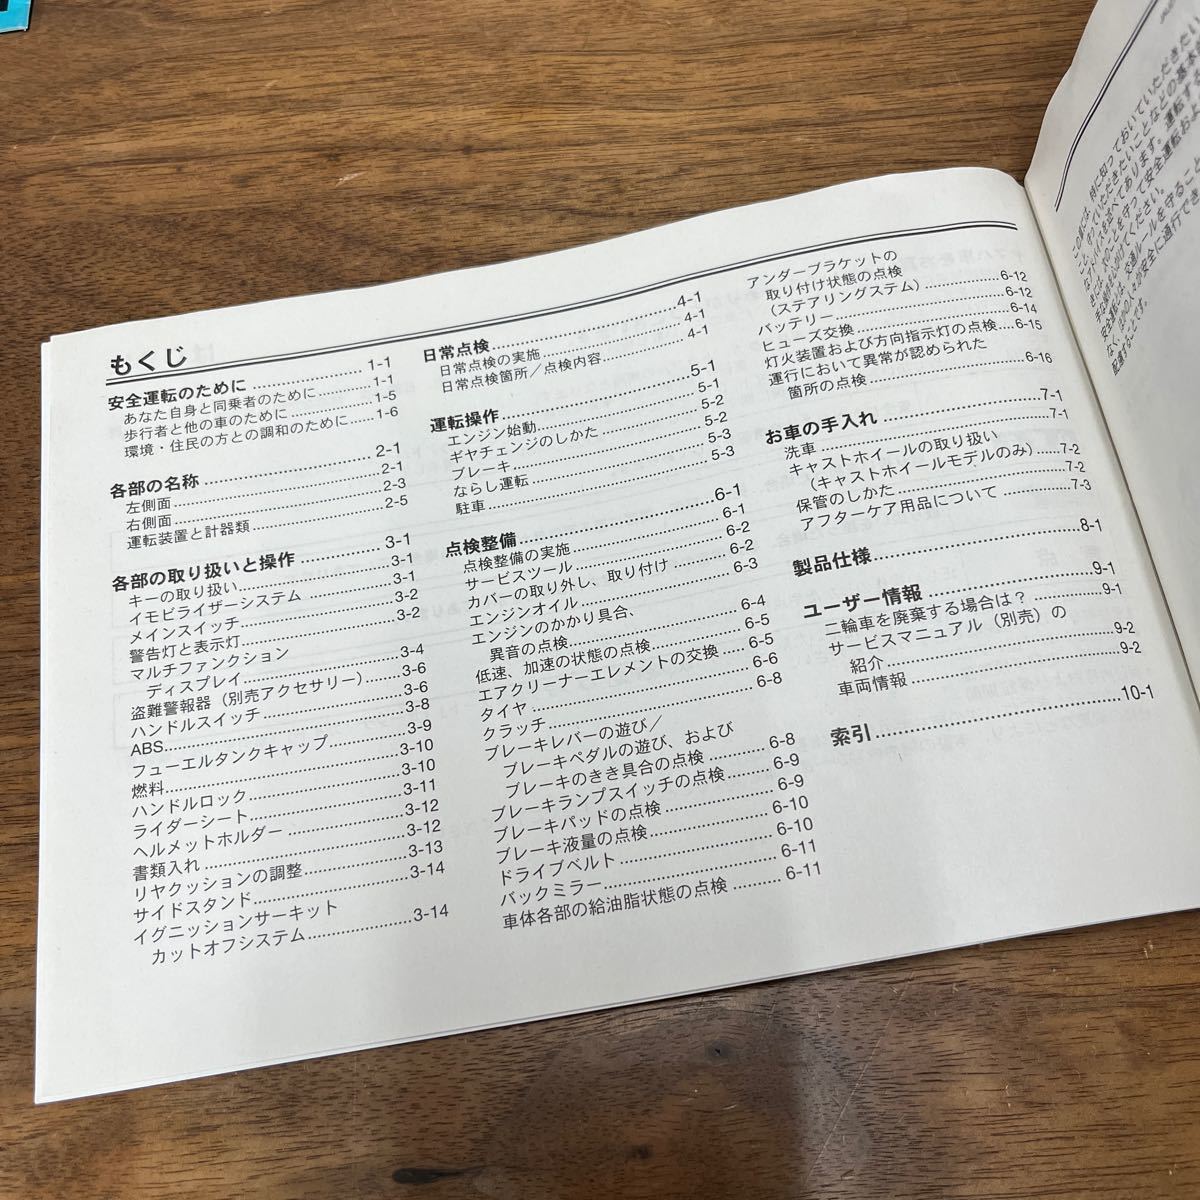 もくじ
安全運転のために 1-1
あなた自身と同乗者のために 1-1
歩行者と他の車のために 1-5
環境・住民の方との調和のために 1-6
各部の名称 2-1
左側面 2-1
右側面 2-3
運転装置と計器類 2-5
各部の取り扱いと操作 3-1
キーの取り扱い 3-1
イモビライザーシステム 3-1
メインスイッチ 3-2
警告灯と表示灯 3-2
マルチファンクション
ディスプレイ 3-4
盗難警報器（別売アクセサリー） 3-6
ハンドルスイッチ 3-6
ABS 3-8
フューエルタンクキャップ 3-9
燃料 3-10
ハンドルロック 3-10
ライダーシート 3-11
ヘルメットホルダー 3-12
書類入れ 3-12
リヤクッションの調整 3-13
サイドスタンド 3-14
イグニッションサーキット
カットオフシステム 3-14
日常点検 4-1
日常点検の実施 4-1
日常点検箇所／点検内容 4-1
運転操作 5-1
エンジン始動 5-1
ギヤチェンジのしかた 5-2
ブレーキ 5-2
ならし運転 5-3
駐車 5-3
点検整備 6-1
点検整備の実施 6-1
サービスツール 6-2
カバーの取り外し、取り付け 6-2
エンジンオイル 6-3
エンジンのかかり具合、
異音の点検 6-4
低速、加速の状態の点検 6-5
エアクリーナーエレメントの交換 6-5
タイヤ 6-6
クラッチ 6-8
ブレーキレバーの遊び／
ブレーキペダルの遊び、および
ブレーキのきき具合の点検 6-8
ブレーキランプスイッチの点検 6-9
ブレーキパッドの点検 6-9
ブレーキ液量の点検 6-10
ドライブベルト 6-10
バックミラー 6-11
車体各部の給油脂状態の点検 6-11
アンダーブラケットの
取り付け状態の点検
（ステアリングステム） 6-12
バッテリー 6-12
ヒューズ交換 6-14
灯火装置および方向指示灯の点検 6-15
運行において異常が認められた
箇所の点検 6-16
お車の手入れ 7-1
洗車 7-1
キャストホイールの取り扱い
（キャストホイールモデルのみ） 7-2
保管のしかた 7-2
アフターケア用品について 7-3
製品仕様 8-1
ユーザー情報 9-1
二輪車を廃棄する場合は？ 9-1
サービスマニュアル（別売）の
紹介 9-2
車両情報 9-2
索引 10-1